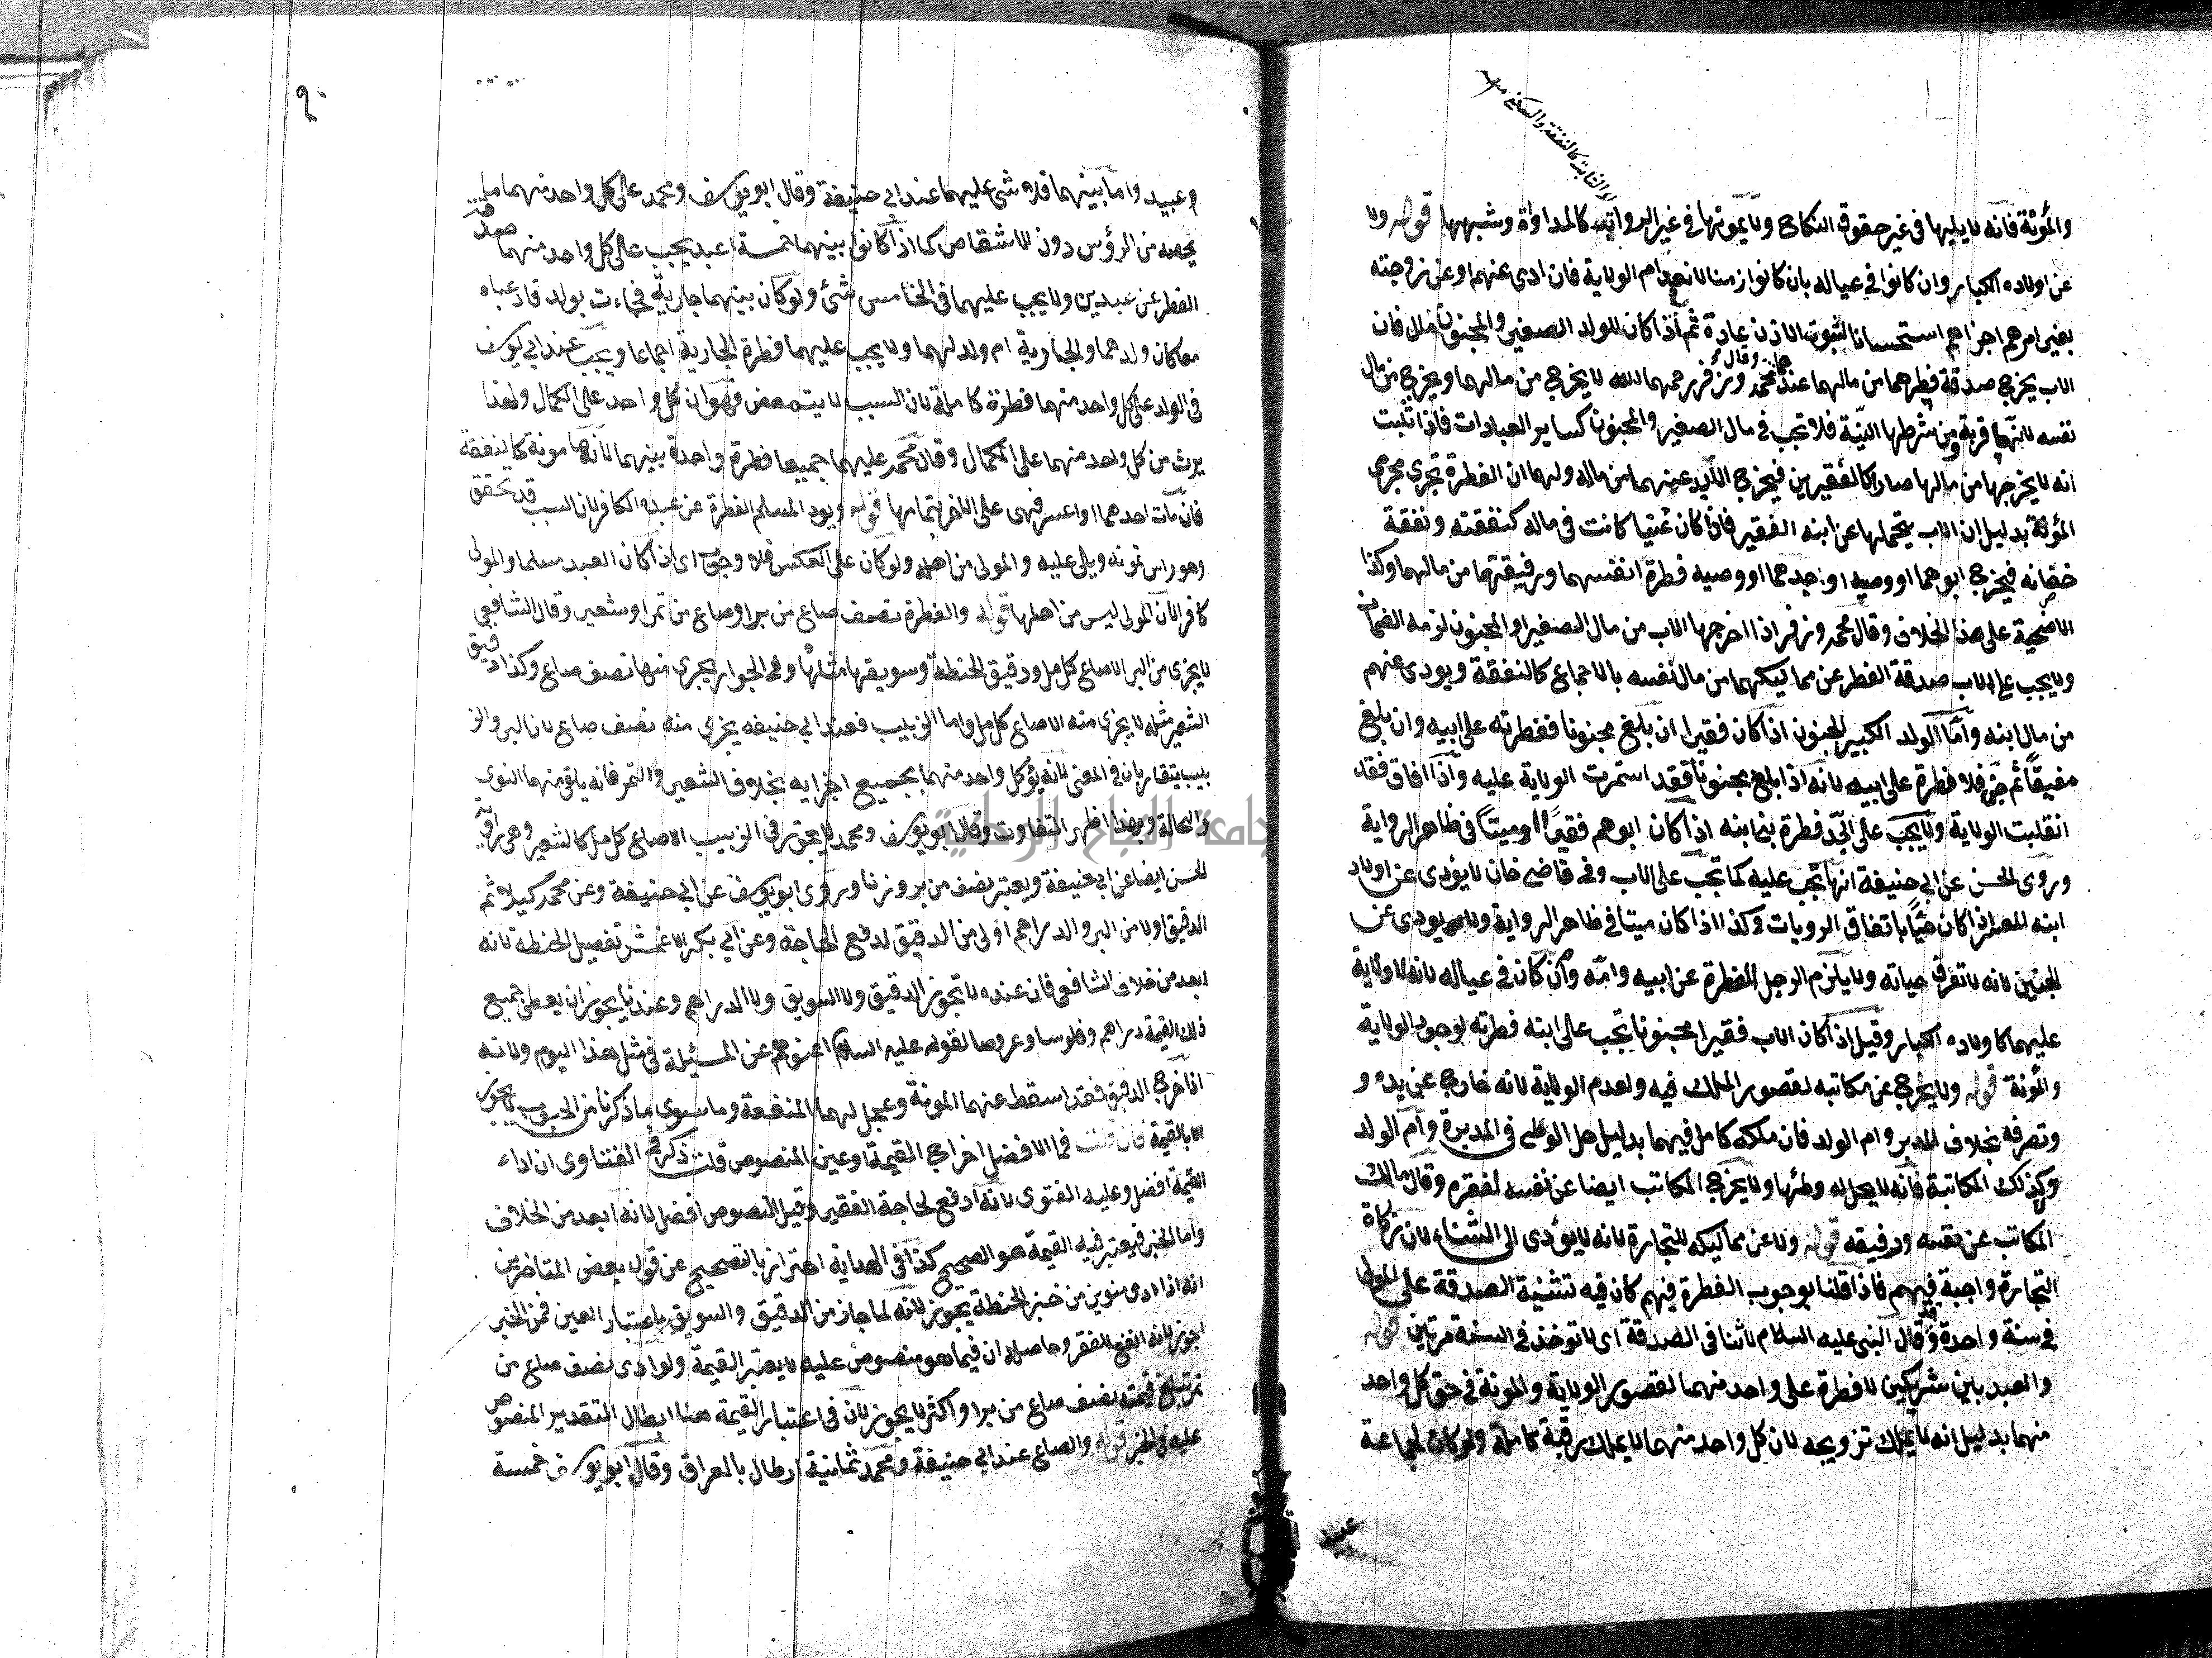 او الثابت كالنفقة والسكنى
والمؤنة فانه لا يليها في غير حقوق النكاح ولا يمونها في غير الرواتب كالمداواة وشبهها قوله ولا
عن اولاده الكبار وان كانوا في عياله بان كانوا زمنا لانعدام الولاية فان ادى عنهم او عن زوجته
بغير امرهم اجزاهم استحسانا لثبوت الاذن عادة ثم اذا كان للولد الصغير والمجنون مال فان
الاب يخرج صدقة فطرهما من مالهما عندهما وقال محمد وزفر رحمهما الله لا يخرج من مالهما ويخرج من مال
نفسه لانها قربة ومن شرطها النية فلا تجب في مال الصغير والمجنون كساير العبادات فاذا ثبت
انه لا يخرجها من مالها صارا كالفقيرين فيخرج الاب عنهما من ماله ولهما ان الفطرة تجرى مجرى
المؤنة بدليل ان الاب يتحملها عن ابنه الفقير فاذا كان غنيا كانت في ماله كنفقته ونفقة
ختانه فيخرج ابوهما او وصيه او جدهما او وصيه فطرة انفسهما ورقيقهما من مالهما وكذا
الاضحية على هذا الخلاف وقال محمد وزفر اذا اخرجها الاب من مال الصغير او المجنون لزمه الضمان
ولا يجب على الاب صدقة الفطر عن مماليكهما من مال نفسه بالاجماع كالنفقة ويودى عنهم
من مال ابنه واما الولد الكبير المجنون اذا كان فقيرا ان بلغ مجنونا ففطرته على ابيه وان بلغ
مفيقا ثم جن فلا فطرة على ابيه لانه اذا بلغ مجنونا فقد استمرت الولاية عليه واذا افاق فقد
انقلبت الولاية ولا يجب على الجد فطرة بني ابنه اذا كان ابوهم فقيرا او ميتا في ظاهر الرواية
وروى الحسن عن ابي حنيفة انها تجب عليه كما تجب على الاب وفي قاضى خان لا يؤدى عن اولاد
ابنه المعسر اذا كان حيا باتفاق الرويات وكذا اذا كان ميتا في ظاهر الرواية ولا يودى عن
الجنين لانه لا تعرف حياته ولا يلزم الرجل الفطرة عن ابيه وامه وان كان في عياله لانه لا ولاية
عليهما كاولاده الكبار وقيل اذا كان الاب فقيرا مجنونا تجب على ابنه فطرته لوجود الولاية
والمؤنة قوله ولا يخرج عن مكاتبه لقصور الملك فيه ولعدم الولاية لانه خارج عن يده و
وتصرفه بخلاف المدبر وام الولد فان ملكه كامل فيهما بدليل حل الوطى في المدبرة وام الولد
وكذلك المكاتبة فانه لا يحل له وطئها ولا يخرج المكاتب ايضا عن نفسه لفقره وقال مالك
المكاتب عن نفسه ورقيقه قوله ولا عن مماليكه للتجارة لانه لا يؤدى الى الثناء لان زكاة
التجارة واجبة فيهم فاذا قلنا بوجوب الفطرة فيهم كان فيه تثنية الصدقة على المولى
في سنة واحدة وقد قال النبي عليه السلام لا ثنا في الصدقة اى لا توخذ في السنة مرتين قوله
والعبد بين شريكين لا فطرة على واحد منهما لقصور الولاية والمونة في حق كل واحد
منهما بدليل انه لا يملك تزويجه لان كل واحد منهما لا يملك رقبة كاملة ولو كان لجماعة
عبيد
٩٠
وعبيد واما بينهما فلا شى عليهما عند ابي حنيفة وقال ابو يوسف ومحمد على كل واحد منهما ما
يخصه من الرؤس دون الاشقاص كما اذا كانوا بينهما خمسة اعبد يجب على كل واحد منهما صدقة
الفطر عن عبدين ولا يجب عليهما في الخامس شئ ولو كان بينهما جارية فجاءت بولد فادعياه
معا كان ولدهما والجارية ام ولد لهما ولا يجب عليهما فطرة الجارية اجماعا ويجب عند ابي يوسف
في الولد على كل واحد منهما فطرة كاملة لان النسب لا يتبعض فهو ابن كل واحد على الكمال ولهذا
يرث من كل واحد منهما على الكمال وقال محمد عليهما جميعا فطرة واحدة بينهما لانها مونة كالنفقة
فان مات احدهما او اعسر فهى على الاخر بتمامها قوله ويود المسلم الفطرة عن عبده الكافر لان السبب قد تحقق
وهو راس تمونه ويلى عليه والمولى من اهله ولو كان على العكس فلا وجوب اى اذا كان العبد مسلما والمولى
كافرا لان المولى ليس من اهلها قوله والفطرة نصف صاع من بر او صاع من تمر او شعير وقال الشافعي
لا يجزى من البر الا صاع كامل ودقيق الحنطة وسويقها مثلها وفي الجواز يجزى منها نصف صاع وكذا دقيق
الشعير مثله لا يجزى منه الا صاع كامل واما الزبيب فعند ابي حنيفه يجزى منه نصف صاع لان البر والز
بيب يتقاربان في المعنى لانه يؤكل واحد منهما بجميع اجزايه بخلاف الشعير والتمر فانه يلقى منهما النوى
والنخالة وبهذا ظهر التفاوت وقال ابو يوسف ومحمد لا يجوز في الزبيب الا صاع كامل كالشعير وهى رواية
الحسن ايضا عن ابي حنيفة ويعتبر نصف من بر وزنا وروى ابو يوسف عن ابي حنيفة وعن محمد كيلا ثم
الدقيق اولا من البر والدراهم اولى من الدقيق لدفع الحاجة وعن ابي بكر الاعمش تفضيل الحنطة لانه
ابعد من خلاف الشافعى فان عنده لا تجوز الدقيق ولا السويق ولا الدراهم وعندنا يجوز ان يعطى جميع
ذلك القيمة دراهم وفلوسا وعروضا لقوله عليه السلام اغنوهم عن المسئلة في مثل هذا اليوم ولانه
اذا اخرج الدقيق فقد اسقط عنهما المونة وعجل لهما المنفعة وما سوى ما ذكرنا من الحبوب لا يجوز
الا بالقيمة فان قلت فما الافضل اخراج القيمة او عين المنصوص قلت ذكر في الفتاوى ان اداء
القيمة افضل وعليه الفتوى لانه ادفع لحاجة الفقير وقيل المنصوص افضل لانه ابعد من الخلاف
واما الخبز فيعتبر فيه القيمة هو الصحيح كذا في الهداية احترازا بالتصحيح عن قول بعض المتاخرين
انه اذا ادى منوين من خبز الحنطة يجوز لانه لما جاز من الدقيق والسويق باعتبار العين فمن الخبز
اجوز لانه انفع للفقر وحاصله ان فيما هو منصوص عليه لا يعتبر القيمة ولو ادى نصف صاع من
تمر تبلغ قيمته نصف صاع من بر او اكثر لا يجوز لان في اعتبار القيمة هنا ابطال التقدير المنصوص
عليه في الخبر قوله والصاع عند ابي حنيفة ومحمد ثمانية ارطال بالعراق وقال ابو يوسف خمسة
جامعة النجاح الوطنية